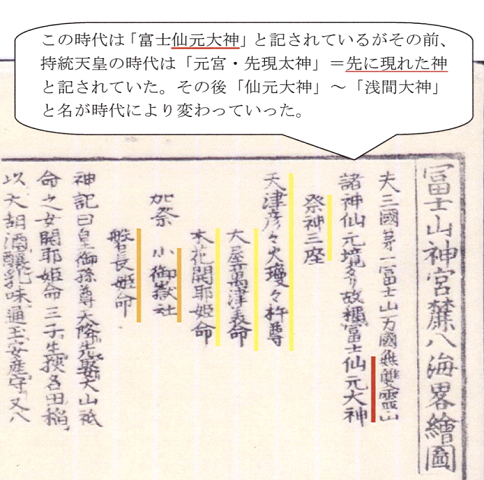 この時代は「富士仙元大神」と記されているがその前、
持統天皇の時代は「元宮・先現太神」＝先に現れた神
と記されていた。その後「仙元大神」～「浅間大神」
と名が時代により変わっていった。
冨士山神宮麓八海畧繪圖
夫三國第一冨士山万國無雙靈山
諸神仙元境
故 冨士仙元大神
祭神三座
天津彦々火瓊々杵尊
大屋
津義命
木花開耶姫命
加祭 小御嶽社
磐長姫命
神記曰皇御孫尊天降
娶大山祇
命之女開耶姫命三子生
名田稲
以天
酒釀
味